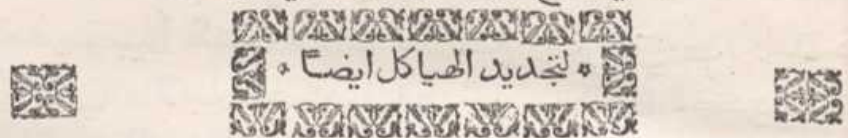 * لتجديد الهياكل ايضاً *